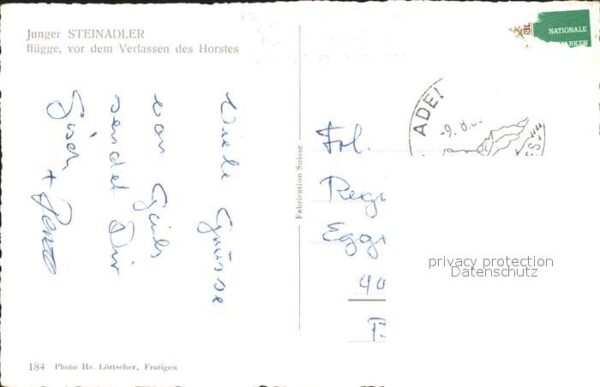 Junger STEINADLER
flügge, vor dem Verlassen des Horstes
Viele Grüsse
von
sendet Dir
Fabrication Suisse
184 Photo Hs. Lörtscher, Frutigen
NATIONALE
MARKEN
ADEL
-9.
Frl.
Regi
Egg
privacy protection
Datenschutz